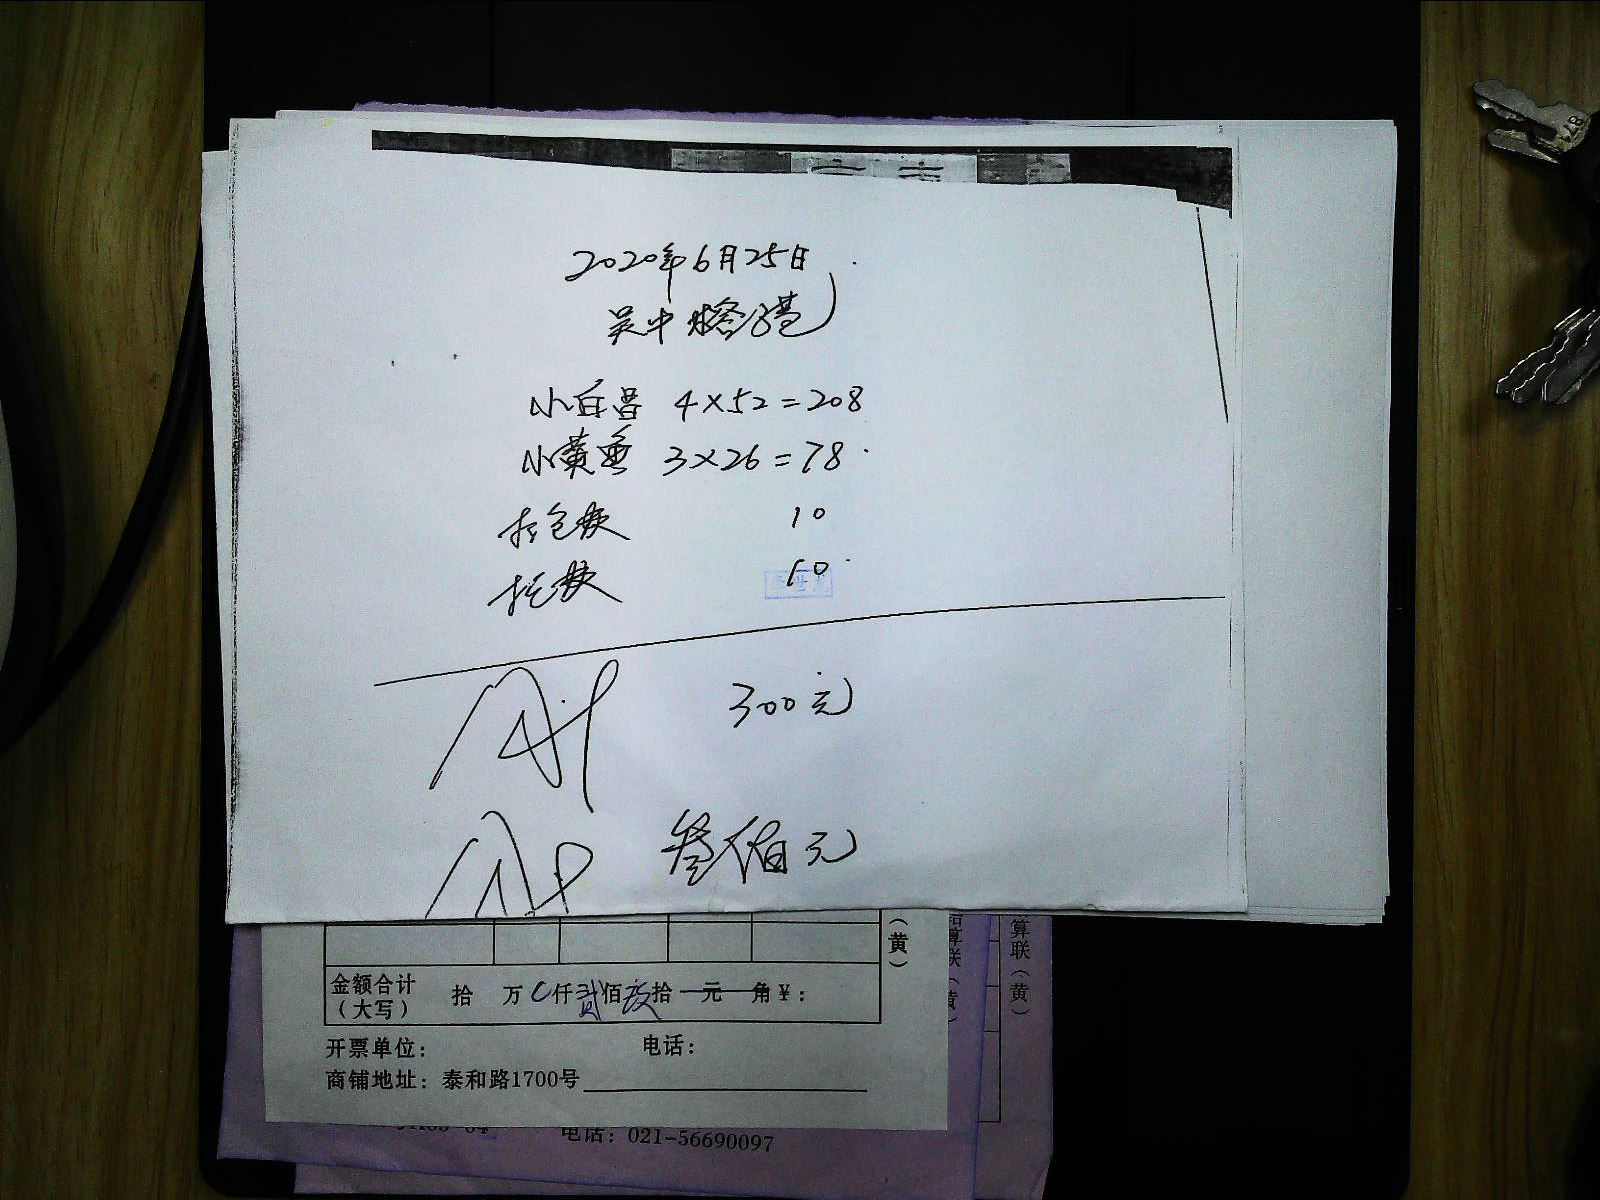 2020年6月25日
吴中
小白 4×52=208
小黄鱼 3×26=78
打包费 10
托费 10
300元
叁佰元
(黄)
金额合计
(大写) 拾 万 0仟贰佰玖拾 元 角¥:
开票单位: 电话:
商铺地址: 泰和路1700号
电话: 021-56690097
算联(黄)
算联(黄)